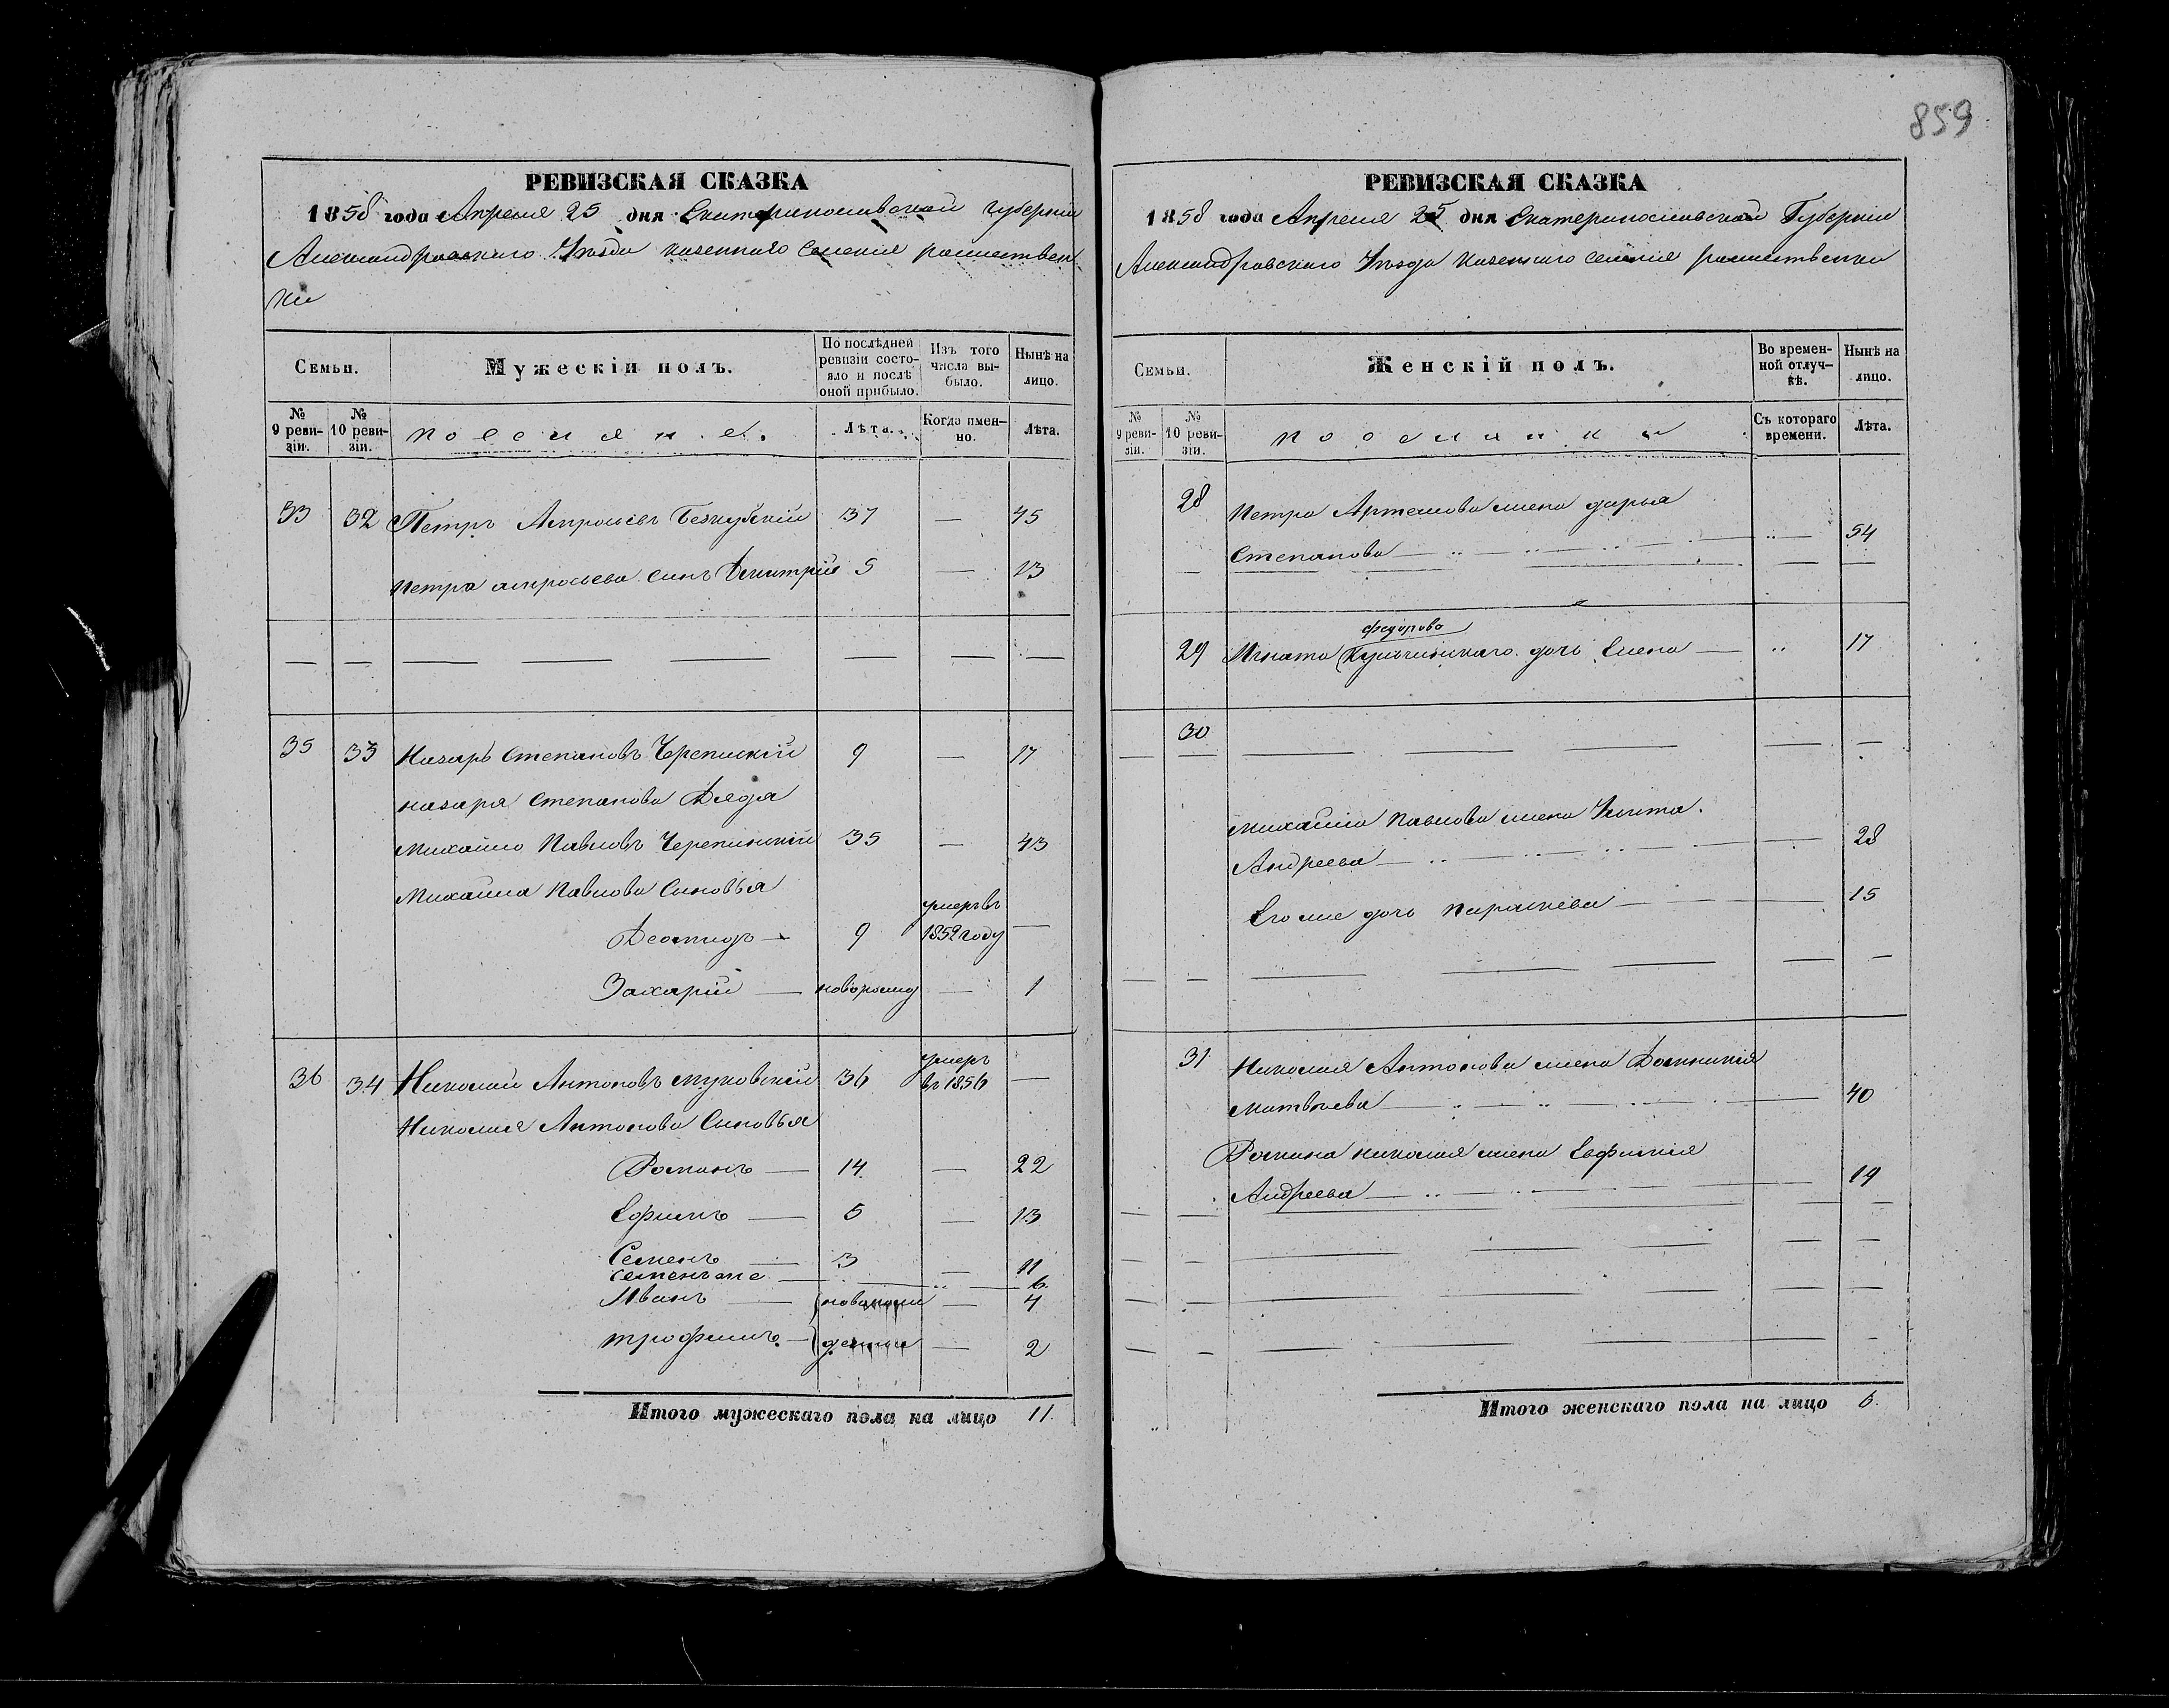 859
РЕВИЗСКАЯ СКАЗКА
1858 года Апреля 25 дня Екатеринославской губерніи
Александровскаго Уѣзда казеннаго селенія рождествен
ки
Семьи.
Мужескій полъ.
По послѣдней ревизіи состояло и послѣ оной прибыло.
Изъ того числа выбыло.
Нынѣ на лицо.
№ 9 ревизіи.
№ 10 ревизіи.
поселяне.
Лѣта.
Когда именно.
Лѣта.
33 32 Петръ Амросіевъ 37 — 45
Петра амросіева сынъ Дмитрій 5 — 13
35 33 Назаръ Степановъ 9 — 17
назаря Степанова Дядя
Михайло Павловъ 35 — 43
Михаила Павлова Сыновья
умеръ въ
Деомидъ — 9 1852 году —
Захарій — новорожд — 1
умеръ
36 34 Николай Антоновъ жуковскій 36 въ 1856 —
Николая Антонова Сыновья
Романъ — 14 — 22
Ефимъ — 5 — 13
Семенъ — 3 — 11
семенъ же — 6
Иванъ — новорож — 4
трофимъ — денные — 2
Итого мужескаго пола на лицо 11.
РЕВИЗСКАЯ СКАЗКА
1858 года Апреля 25 дня Екатеринославской Губерніи
Александровскаго Уѣзда казеннаго селенія рождественки
Семьи.
Женскій полъ.
Во временной отлучкѣ.
Нынѣ на лицо.
№ 9 ревизіи.
№ 10 ревизіи.
поселянки
Съ котораго времени.
Лѣта.
28 Петра Артемова жена дарья
Степанова — 54
федорова
29 Игната дочь Елена — 17
30
Михайла Павлова жена Улита
Андреева — 28
Его же дочь Параскева — 15
31 Николая Антонова жена Домникія
Матвѣева — 40
Романа николая жена Евфимія
Андреева — 19
Итого женскаго пола на лицо 6.